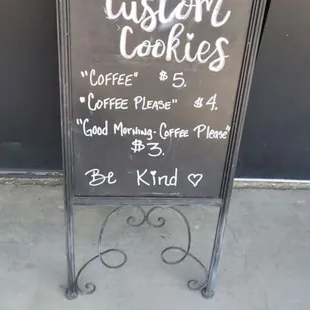 Custom
Cookies
"Coffee" $5.
"Coffee Please" $4.
"Good Morning - Coffee Please"
$3.
Be Kind ♡